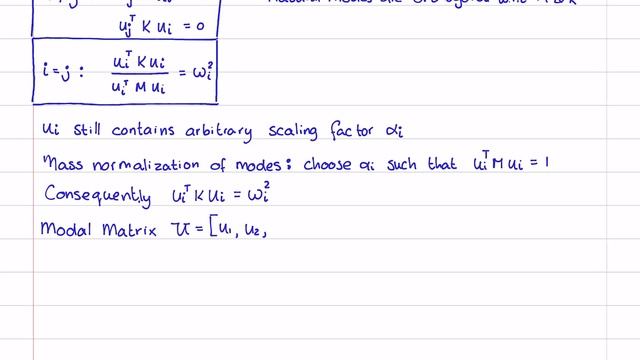 uⱼᵀ K uᵢ = 0
i = j : uᵢᵀ K uᵢ / uᵢᵀ M uᵢ = ωᵢ²
uᵢ still contains arbitrary scaling factor αᵢ
Mass normalization of modes : choose αᵢ such that uᵢᵀ M uᵢ = 1
Consequently uᵢᵀ K uᵢ = ωᵢ²
Modal Matrix U = [u₁, u₂,